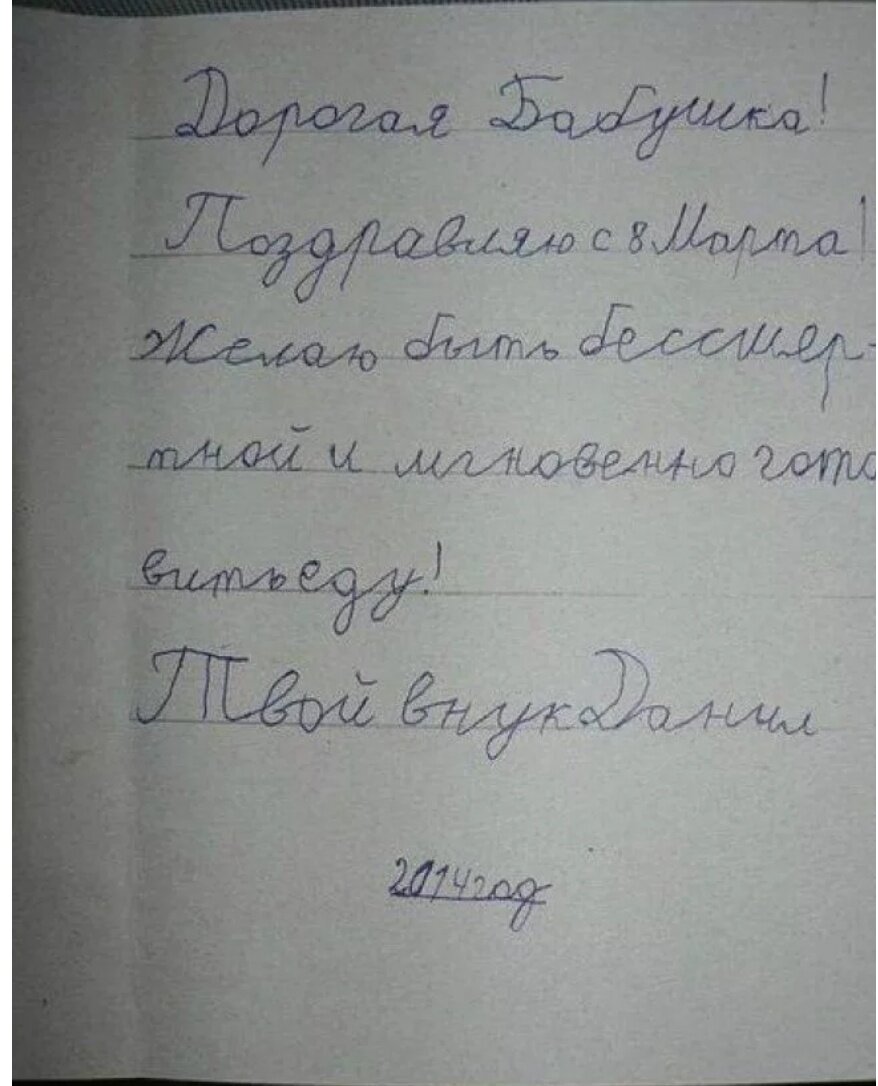 Дорогая Бабушка!
Поздравляю с 8 Марта!
Желаю быть бессмяр-
тной и мгновенно гото
вить еду!
Твой внук Данил
2014 год